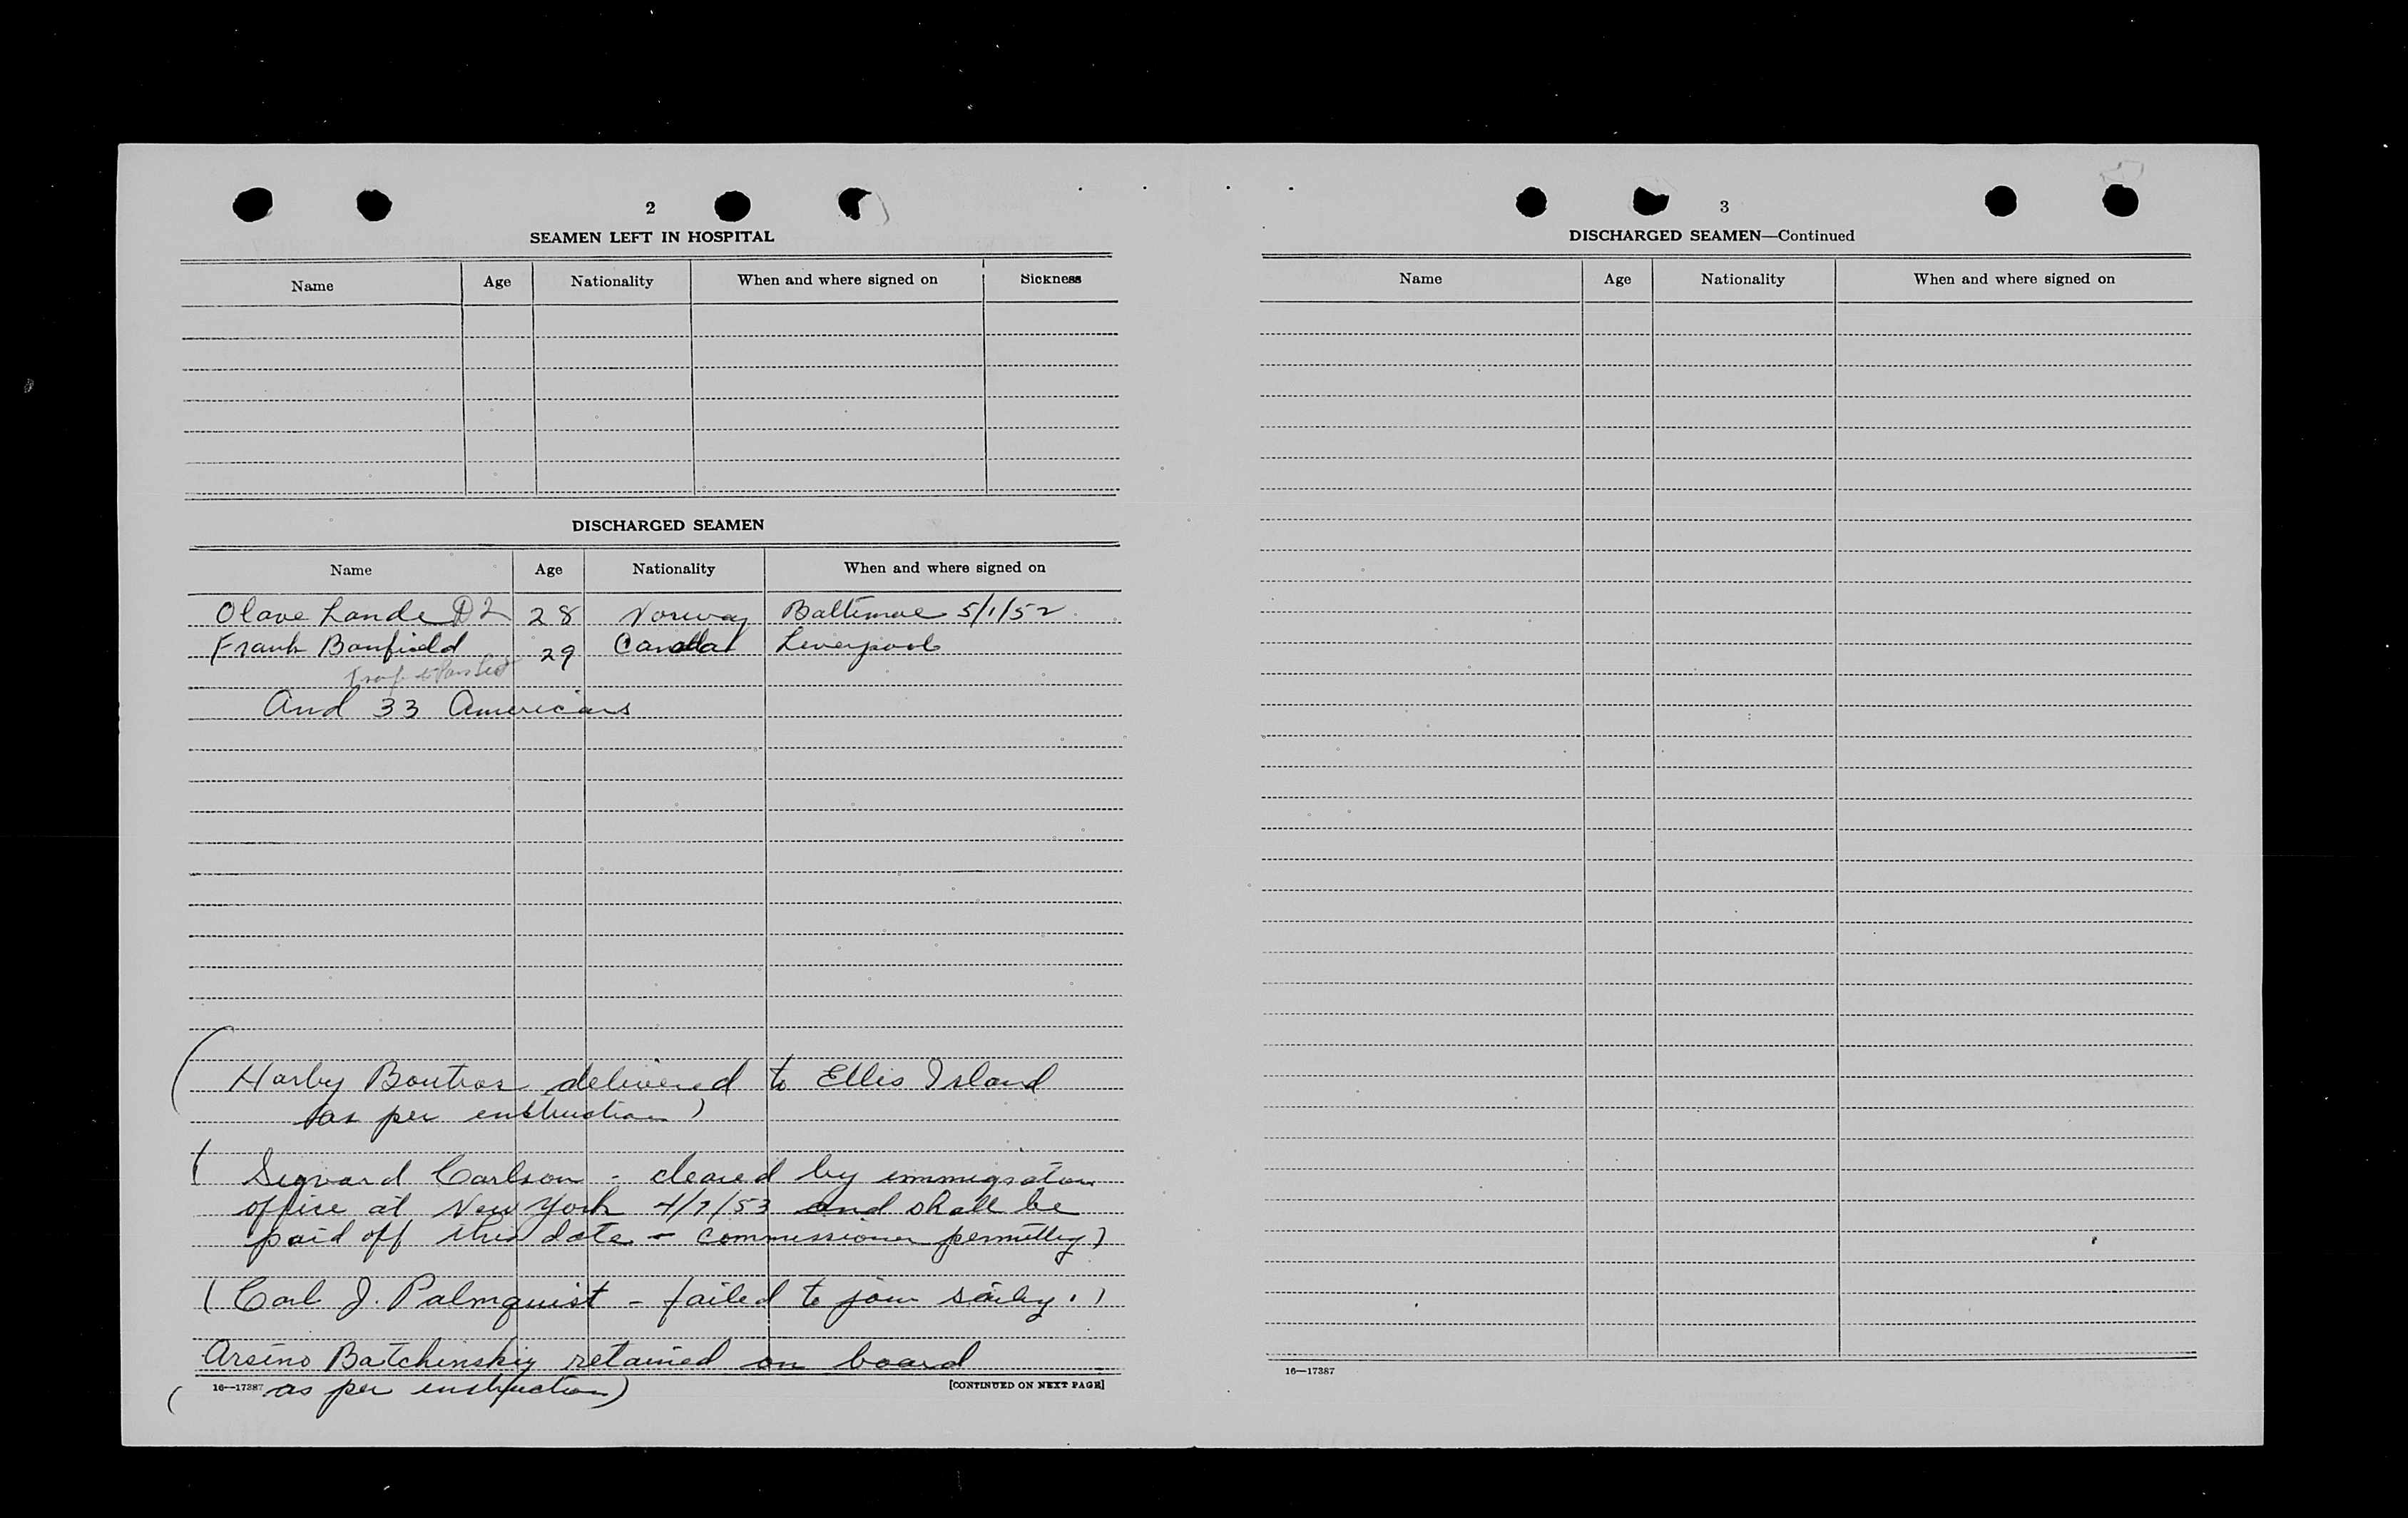 2
SEAMEN LEFT IN HOSPITAL
Name Age Nationality When and where signed on Sickness
DISCHARGED SEAMEN
Name Age Nationality When and where signed on
Olave Lande D2 28 Norway Baltimore 5/1/52
Frank Banfield 29 Canada Liverpool
And 33 Americans
( Harby Boutros delivered to Ellis Island
as per enstruction )
( Sigvard Carlson - cleared by emmigration
office at New York 4/7/53 and shall be
paid off this date - commissioner permittig )
( Carl J. Palmquist - failed to join sailig. )
Arseno Batchinskiy retained on board
( 16—17387 as per enstruction )
[CONTINUED ON NEXT PAGE]
3
DISCHARGED SEAMEN—Continued
Name Age Nationality When and where signed on
16—17387